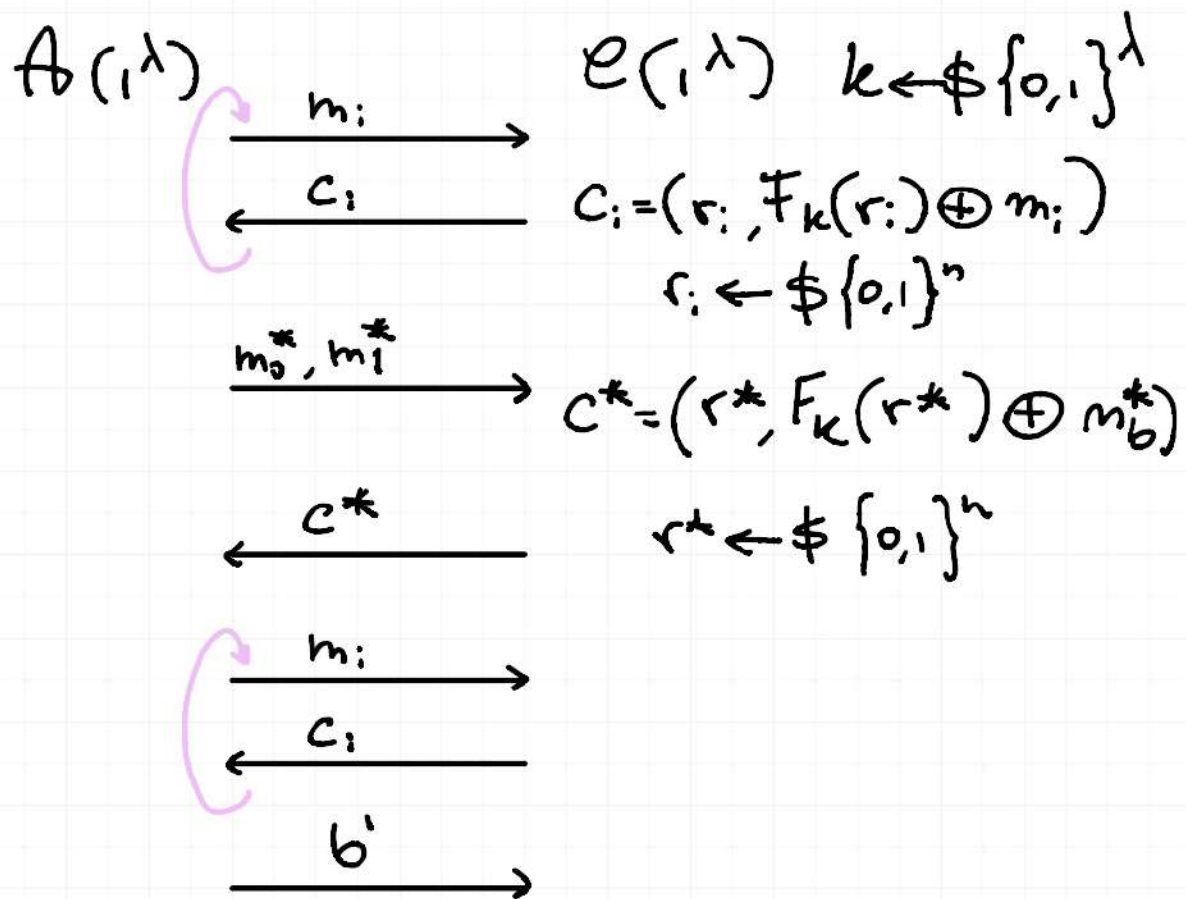 A(1^λ) C(1^λ) k←${0,1}^λ
m_i
c_i c_i=(r_i,F_k(r_i)⊕m_i)
r_i←${0,1}^n
m_0^*,m_1^* c^*=(r^*,F_k(r^*)⊕m_b^*)
c^* r^*←${0,1}^n
m_i
c_i
b'